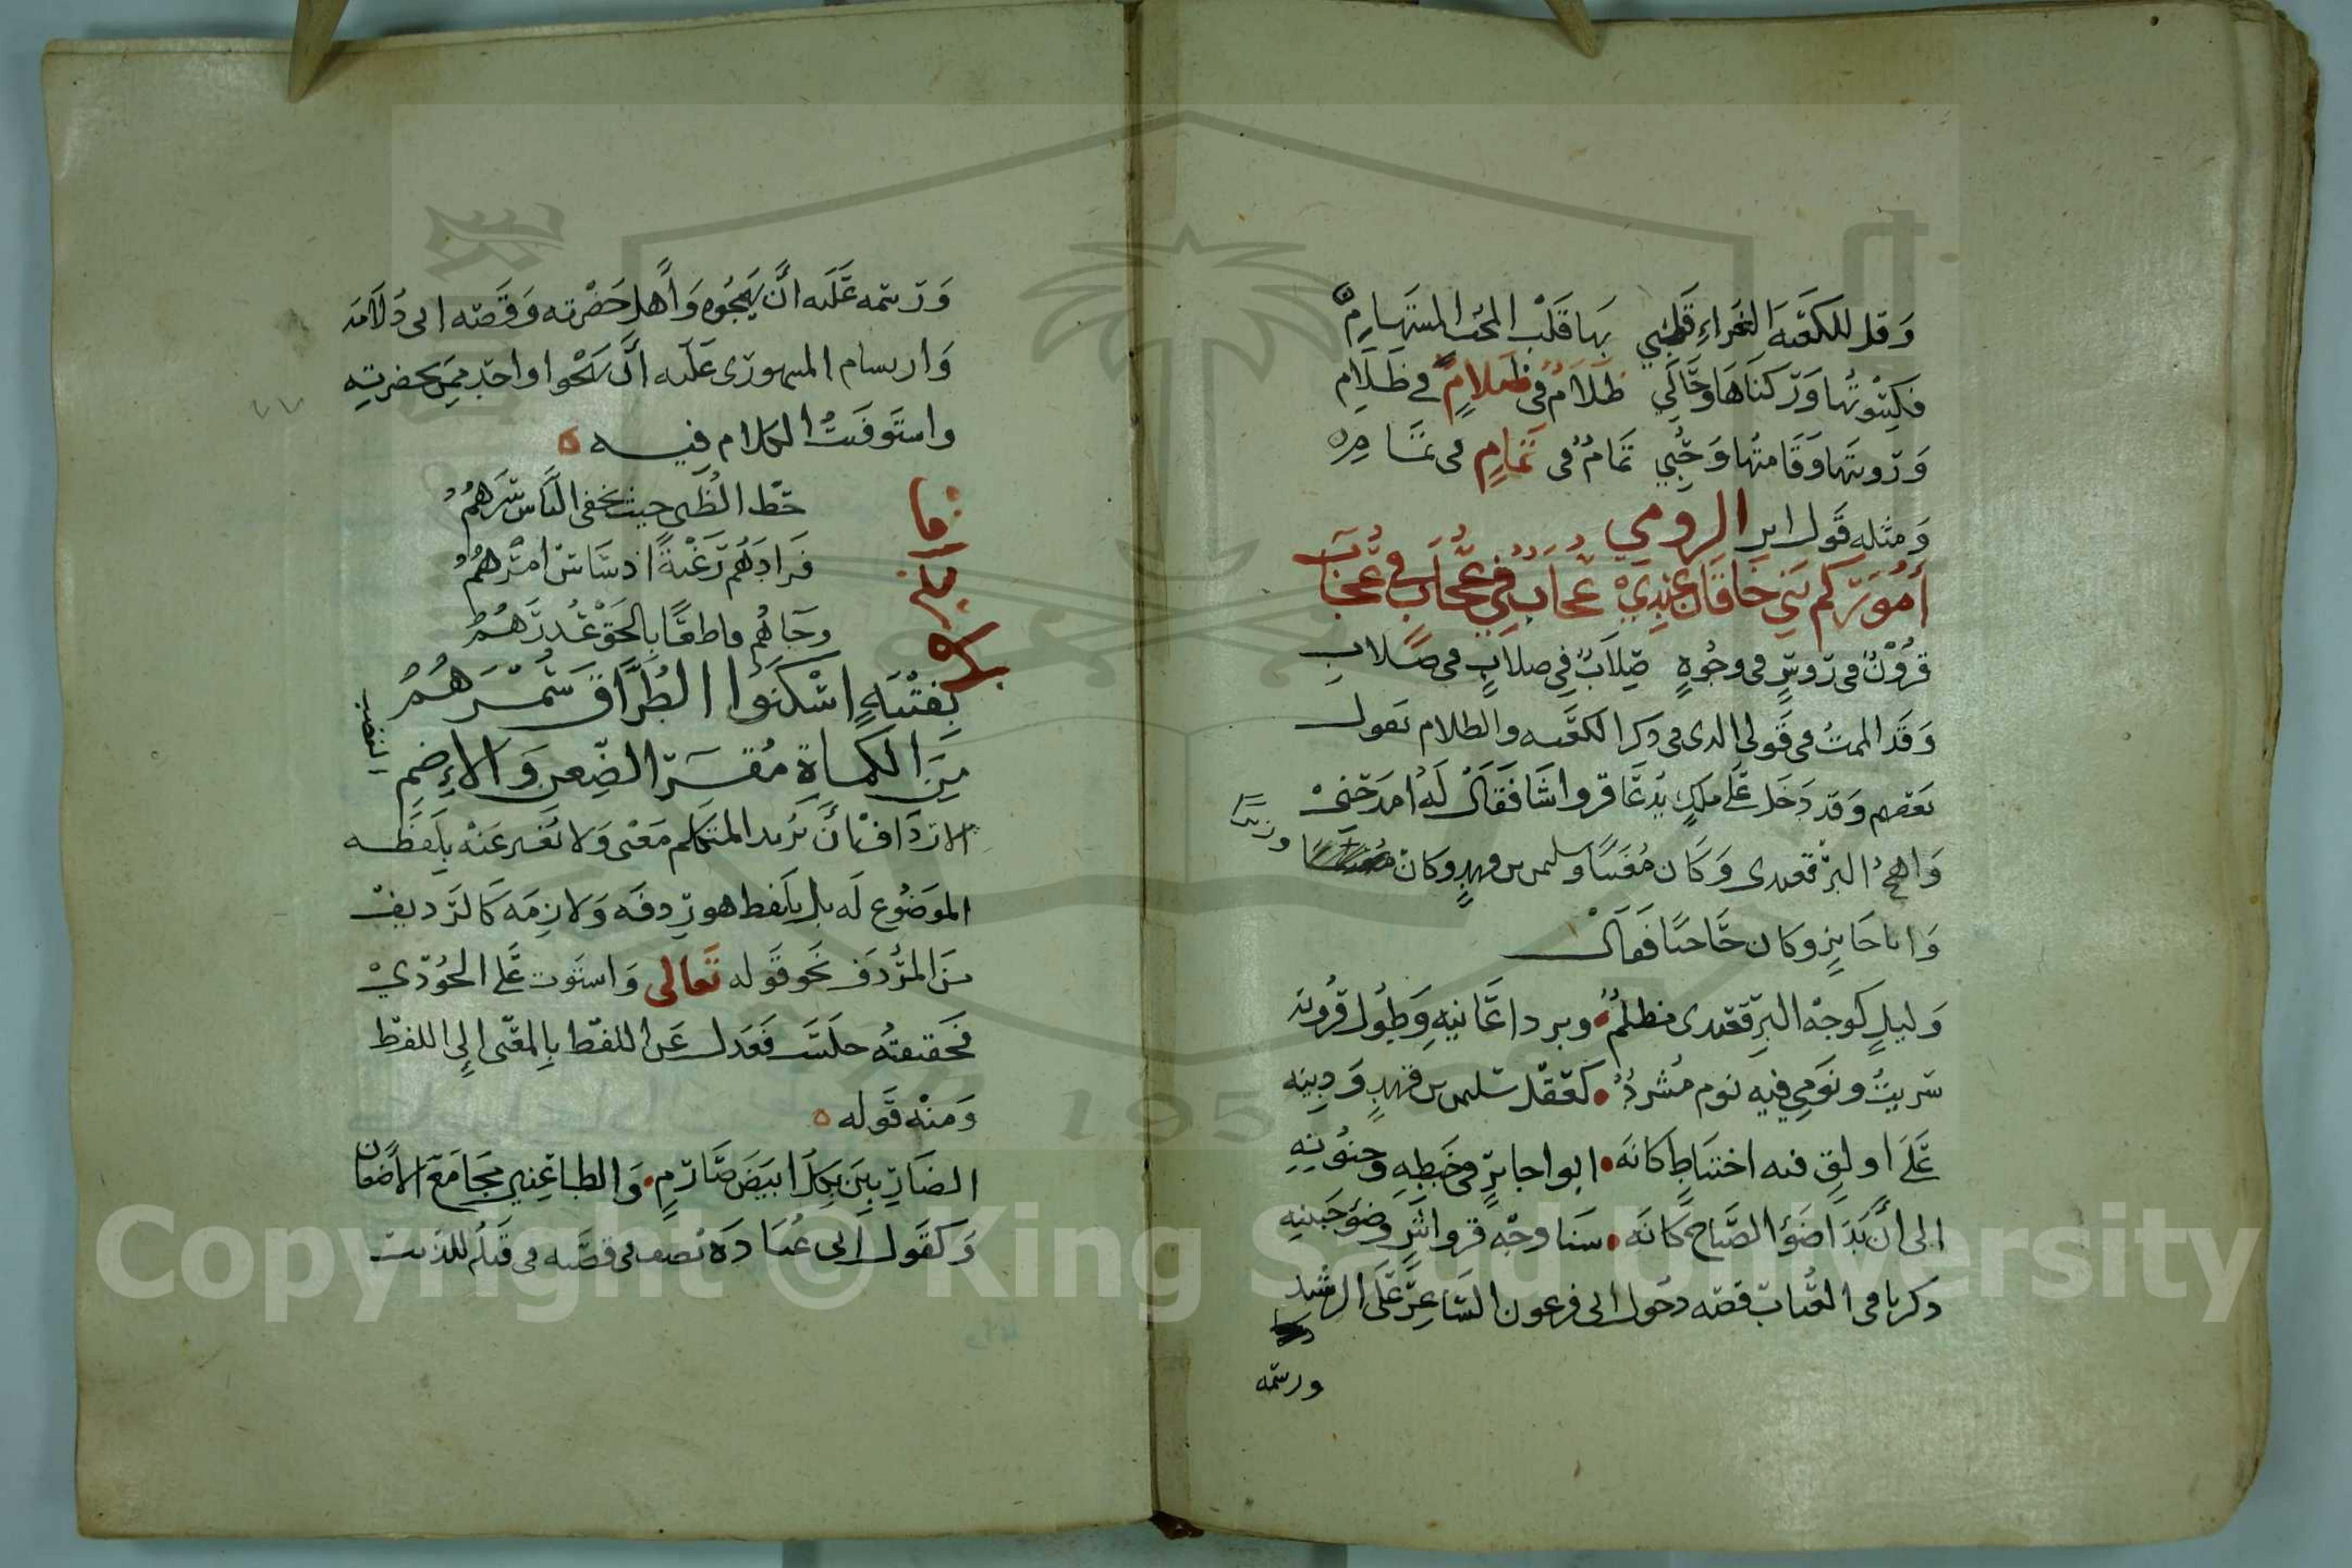 وَقل للكعَبَه الغَراءِ قَلبي بهَا قَلْبُ المُحُب المستَهامِ
فكِسْوتُها وَركنَاهَا وَحَالي ظَلَامٌ في ظَلامٍ في ظَلَامِ
وَرَوِيتَها وَقَامتُها وَحُبّي تَمامٌ في تَمامٍ في تمَامِ
وَمثله قَول ابن الرومي
أُمُورُكم بَني خَاقَان عِندِيْ عُجَابٌ في عُجَابٍ في عُجَابِ
قرُوْنٌ في رَوسٍ في وجُوهٍ صِلَابٌ فِي صلابٍ في صِلابِ
وَقَد الممتُ في قَولي الدى في دكر الكعَبه والظلام بقول
بعَضهم وَقد دَخَل عَلَى ملكٍ يدُعَا قرواشَا فَقَالَ لَهُ امدَحْنِيْ
وَاهجُ البرْقعَيدى وَكَان مُغَنيًا وسليمن بن فهدٍ وكان وزيرًا
وَابا جَابرٍ وكان حَاجبًا فَقالَ
وَليلٍ كوجْه البرِقَعيدى مظلمٌ • وبرد اغَانيهِ وَطُول قرُونه
سَريتُ ونَومِي فيه نوم مُشردٌ • كعَقل سُليمن بن فهدٍ وَدينِه
عَلَى اولقٍ فيه اختبَاطٍ كانَه • ابو اجابرٍ في خَبطِهِ وجنُونِهِ
الى أنَ بَدَا ضَوْؤ الصّبَاح كَانَه • سَنا وجْه قرواشٍ وضوْء جَبينِهِ
دكر با في العُباب قصّه دخُول ابى فرعون الشَاعِر عَلَى الرشيد
ورسمه
وَرَسمه عَلَيه انَ يَهجُوه وَأهل حَضرته وَقَصَه ابى دُلاَمَه
وَارسام المهدى عَلَيه انَ يَهجُوا واحدٍ ممِن بحضرتِهِ
واستَوفَيتُ الكلام فِيه
حَط الظبى حيث يخفى النَاس سَرهُمُ
فَرادهُم رَغْبَةً اذ شَاش امْرهُمُ
وجَاهُم قاطعًا بالحَق عُدرَهُمُ
بِفتْيَهٍ اسْكَنُوا اطرَافَ سُمْرِهُمُ
مِنَ الكمَاةِ مُقَر الضِّعن وَالاِضمِ
الاردَاف أنَ يُريد المتكلم مَعْنى وَلا يُعبر عَنْه بلَفظه
الموَضُوع لَه بل بلَفط هو رِدفَه وَلازِمَه كَالرَديف
مَن المرُدَف نَحو قَوله تَعَالى وَاستَوت عَلى الجُودِيْ
فحَقيقتُه جلَسَت فَعَدَل عَن اللفظ بالمعَنى الى اللفظ
وَمنْه قَوله
الضَارِبين بكِل ابيَض صَارمٍ • وَالطاعِنين مَجَامعَ الاضعان
وَكقَول ابى عُبَادَه يَصف في قصَيده في قتلُه للذيب